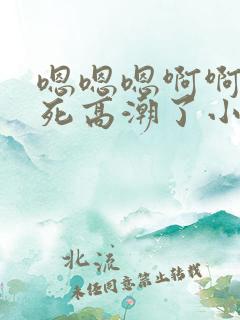 嗯嗯嗯啊啊
死高潮了小
北流
未经同意禁止转载